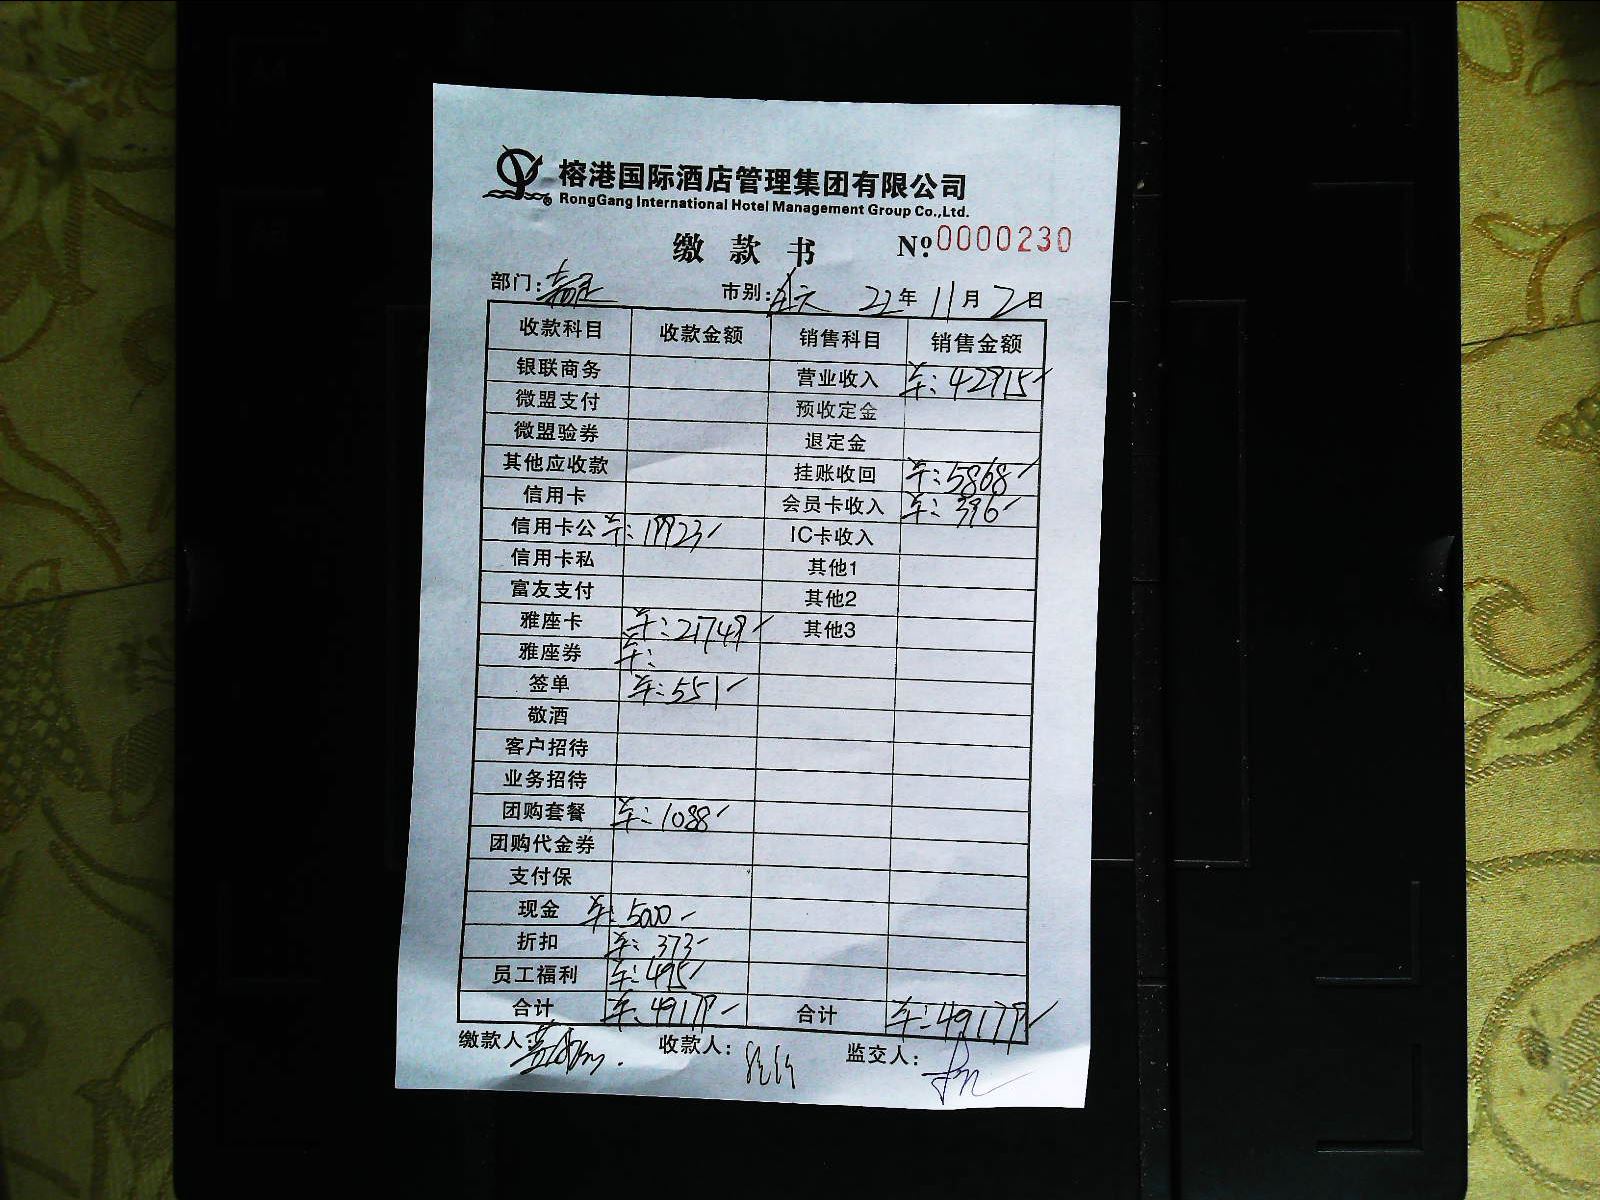 榕港国际酒店管理集团有限公司
RongGang International Hotel Management Group Co.,Ltd.
缴款书 №:0000230
部门: 市别:全天 22年11月2日
收款科目 收款金额 销售科目 销售金额
银联商务 营业收入 ¥:42915
微盟支付 预收定金
微盟验券 退定金
其他应收款 挂账收回 ¥:5868
信用卡 会员卡收入 ¥:396
信用卡公 ¥:19923 IC卡收入
信用卡私 其他1
富友支付 其他2
雅座卡 ¥:21749 其他3
雅座券 ¥:
签单 ¥:551
敬酒
客户招待
业务招待
团购套餐 ¥:1088
团购代金券
支付保
现金 ¥:5000
折扣 ¥:373
员工福利 ¥:495
合计 ¥:49179 合计 ¥:49179
缴款人: 收款人: 监交人: